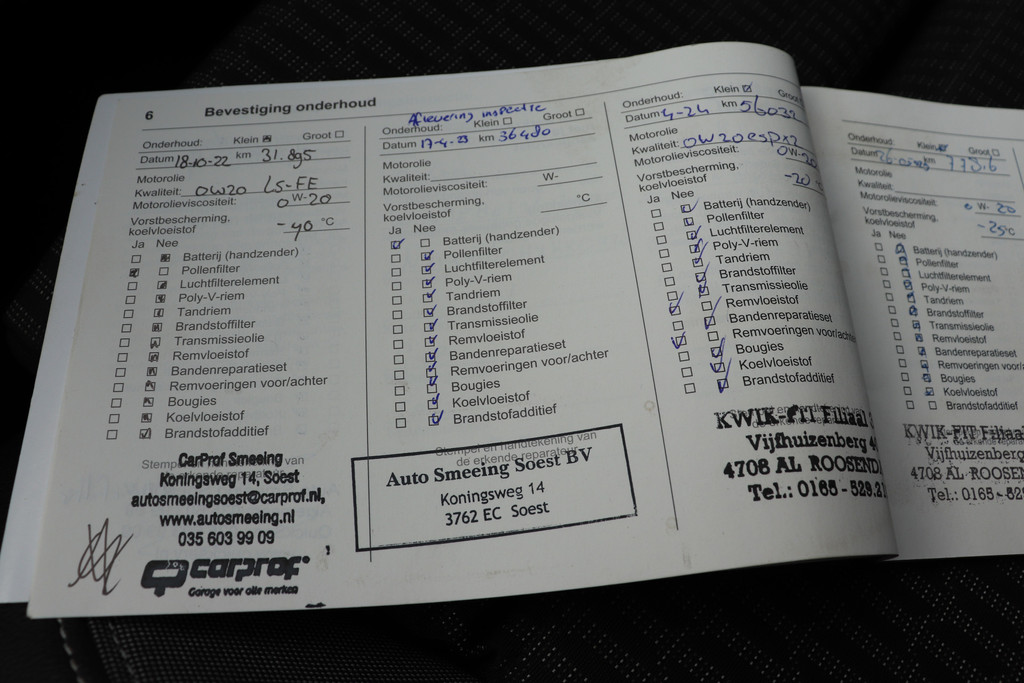 6 Bevestiging onderhoud
Onderhoud: Klein ☒ Groot ☐
Datum 18-10-22 km 31.895
Motorolie
Kwaliteit: 0W20 LS-FE
Motorolieviscositeit: 0W-20
Vorstbescherming,
koelvloeistof -40 °C
Ja Nee
Batterij (handzender)
Pollenfilter
Luchtfilterelement
Poly-V-riem
Tandriem
Brandstoffilter
Transmissieolie
Remvloeistof
Bandenreparatieset
Remvoeringen voor/achter
Bougies
Koelvloeistof
Brandstofadditief
CarProf Smeeing
Koningsweg 14, Soest
autosmeeingsoest@carprof.nl,
www.autosmeeing.nl
035 603 99 09
carprof
Garage voor alle merken
Aflevering inspectie
Onderhoud: Klein ☐ Groot ☐
Datum 17-4-23 km 36480
Motorolie
Kwaliteit:
Motorolieviscositeit: W-
Vorstbescherming,
koelvloeistof °C
Ja Nee
Batterij (handzender)
Pollenfilter
Luchtfilterelement
Poly-V-riem
Tandriem
Brandstoffilter
Transmissieolie
Remvloeistof
Bandenreparatieset
Remvoeringen voor/achter
Bougies
Koelvloeistof
Brandstofadditief
Stempel en handtekening van
de erkende reparateur
Auto Smeeing Soest BV
Koningsweg 14
3762 EC Soest
Onderhoud: Klein ☑ Groot
Datum 4-24 km
Motorolie
Kwaliteit:
Motorolieviscositeit: 0W-20
Vorstbescherming,
koelvloeistof -20
Ja Nee
Batterij (handzender)
Pollenfilter
Luchtfilterelement
Poly-V-riem
Tandriem
Brandstoffilter
Transmissieolie
Remvloeistof
Bandenreparatieset
Remvoeringen voor/achter
Bougies
Koelvloeistof
Brandstofadditief
KWIK-FIT Filiaal
Vijfhuizenberg
4708 AL ROOSEND
Tel.: 0165-529.
Onderhoud: Klein Groot ☐
Datum km
Motorolie
Kwaliteit:
Motorolieviscositeit: 0 W- 20
Vorstbescherming,
koelvloeistof -25°C
Ja Nee
Batterij (handzender)
Pollenfilter
Luchtfilterelement
Poly-V-riem
Tandriem
Brandstoffilter
Transmissieolie
Remvloeistof
Bandenreparatieset
Remvoeringen voor/
Bougies
Koelvloeistof
Brandstofadditief
KWIK-FIT Filiaal
Vijfhuizenberg
4708 AL ROOS
Tel.: 0165-52